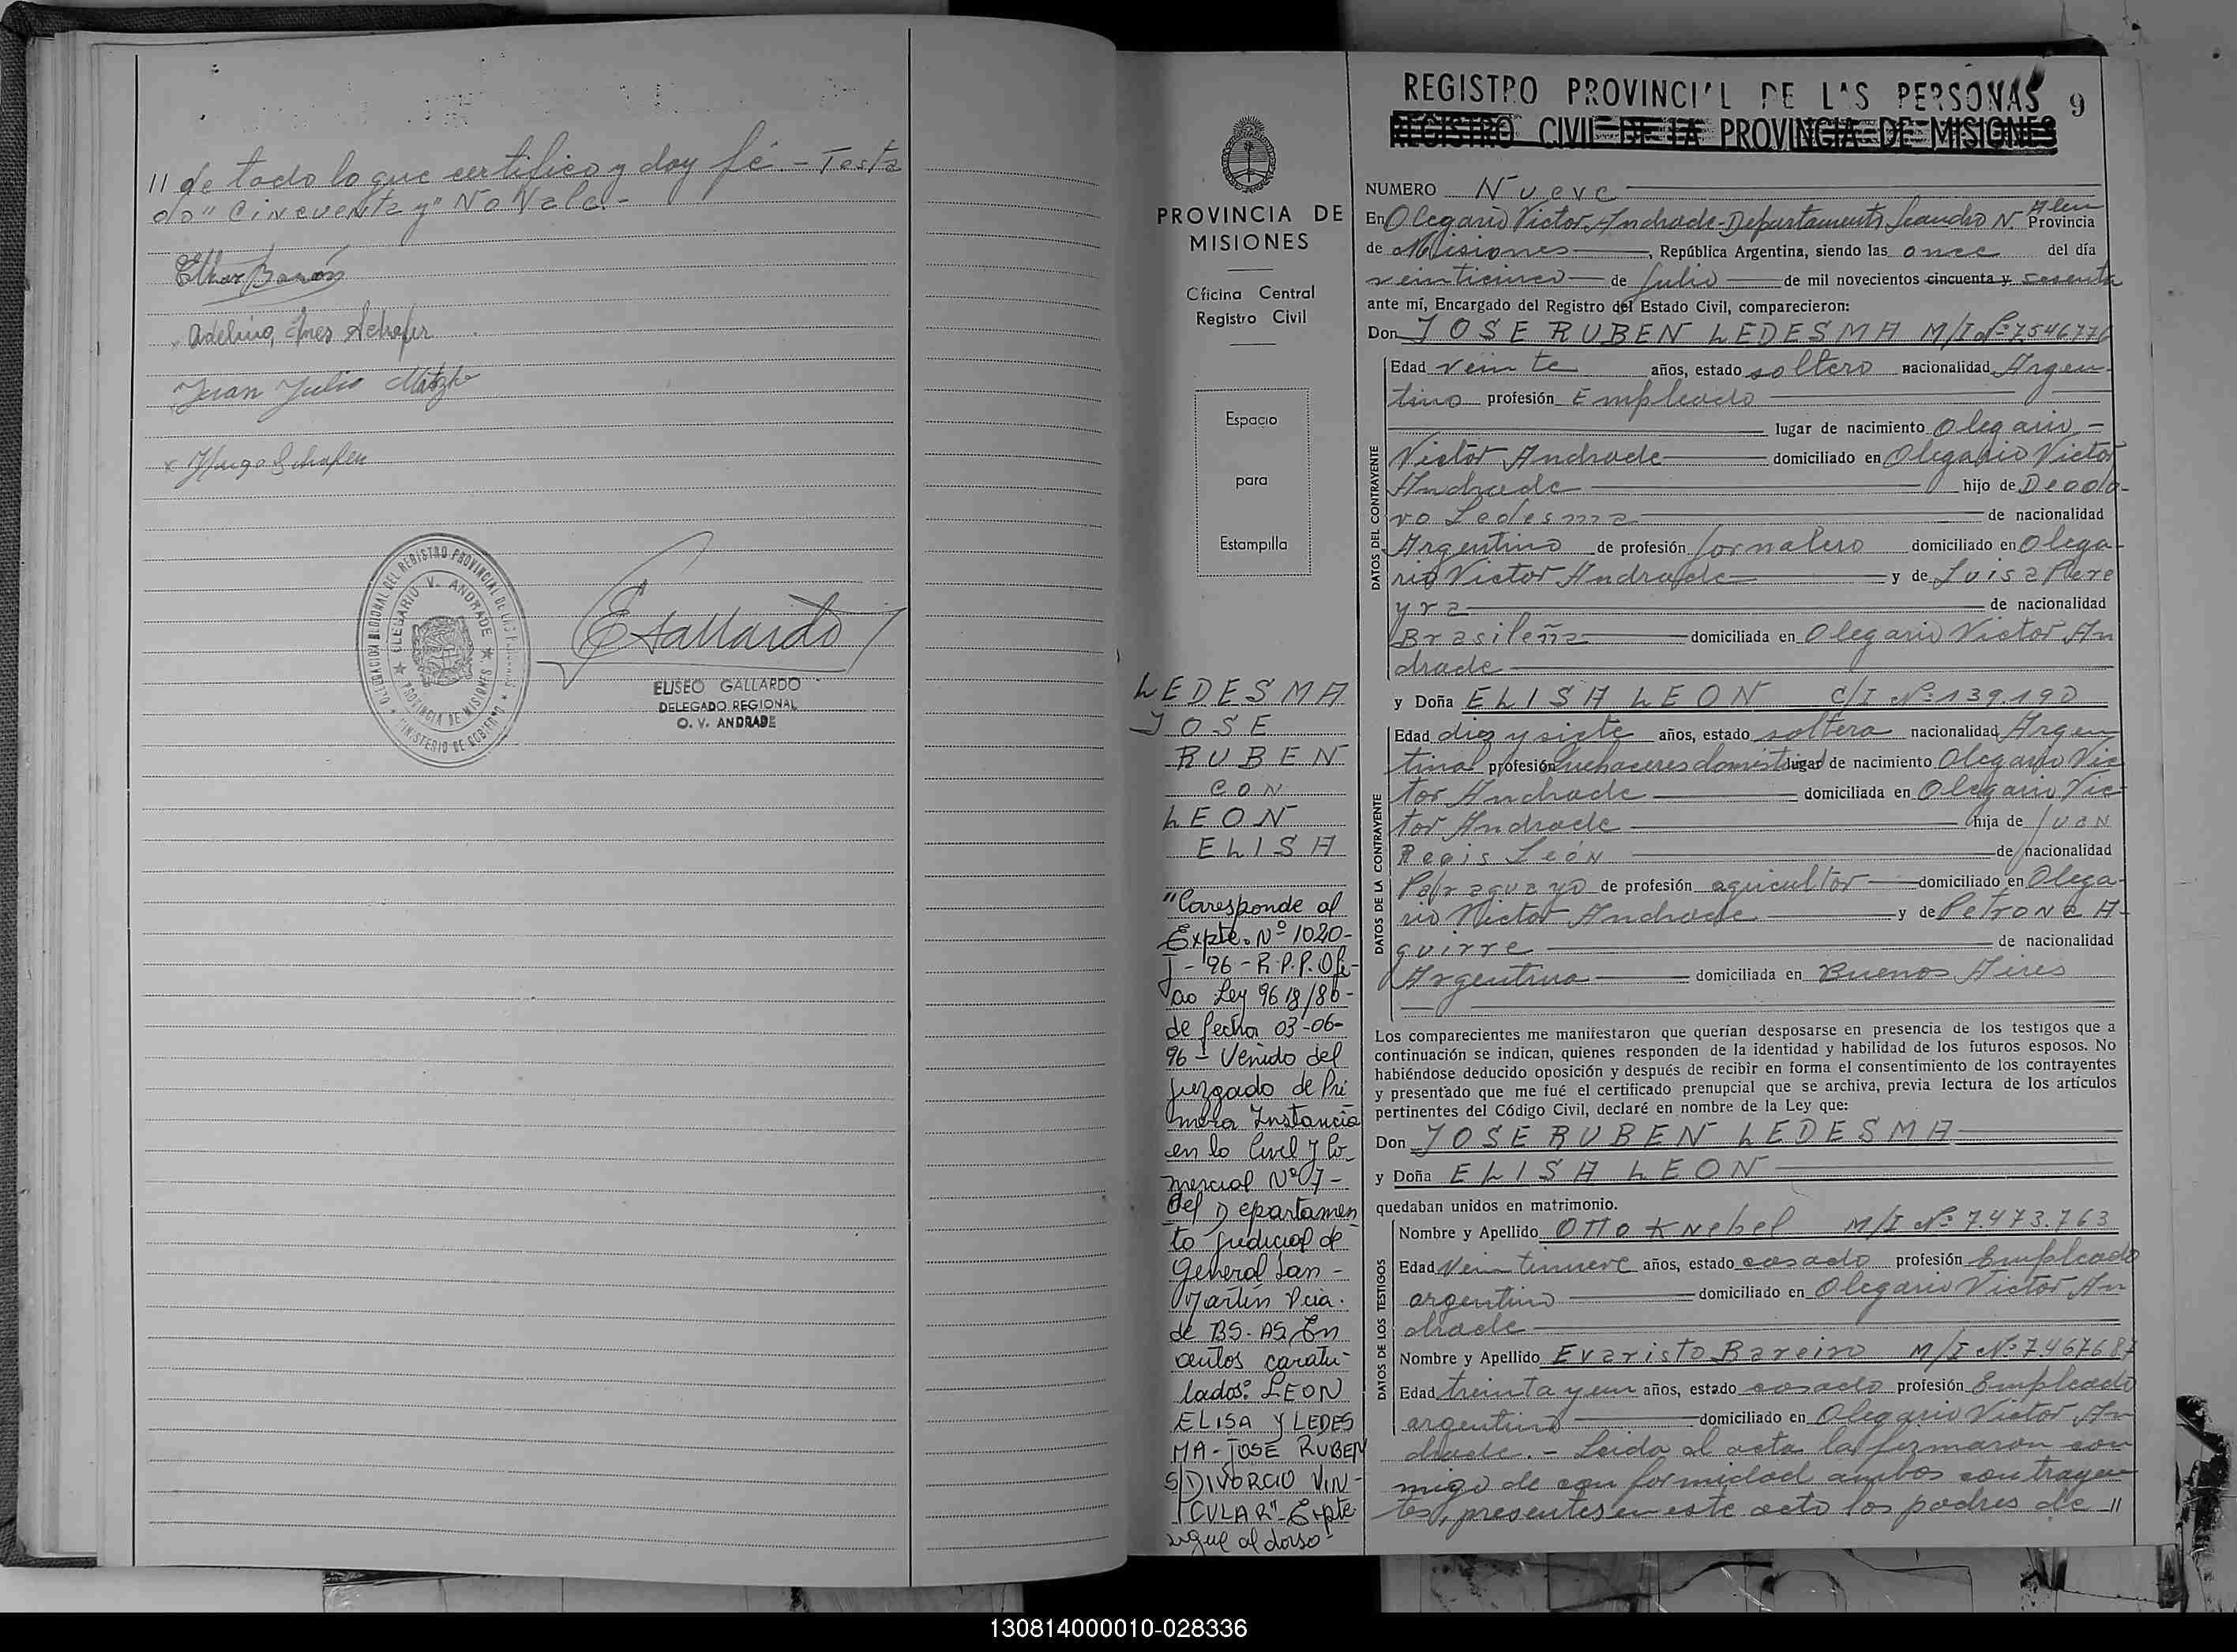 11 de todo lo que certifico y doy fé. - Testa
do " Cincuenta y" No Vale. -
Adelina Ines Schafer
Juan Julio
x Hugo Schafer
DELEGACION REGIONAL DEL REGISTRO PROVINCIAL DE LAS PERSONAS
OLEGARIO V. ANDRADE
PROVINCIA DE MISIONES
MINISTERIO DE GOBIERNO
EGallardo
ELISEO GALLARDO
DELEGADO REGIONAL
O. V. ANDRADE
PROVINCIA DE
MISIONES
Oficina Central
Registro Civil
Espacio
para
Estampilla
LEDESMA
JOSE
RUBEN
CON
LEON
ELISA
"Corresponde al
Expte. Nº 1020-
J-96-R.P.P. Ofi-
cio Ley 9618/80-
de fecha 03-06-
96- Venido del
Juzgado de Pri
mera Instancia
en lo Civil y Co-
mercial Nº 7-
del Departamen
to Judicial de
General San-
Martín Pcia.
de BS. AS. En
autos caratu-
lados: LEON
ELISA Y LEDES
MA-JOSE RUBEN
S/DIVORCIO VIN-
CULAR"- Expte
sigue al dorso-
REGISTRO PROVINCIAL DE LAS PERSONAS 9
REGISTRO CIVIL DE LA PROVINCIA DE MISIONES
NUMERO Nueve
En Olegario Victor Andrade-Departamento Leandro N. Alem Provincia
de Misiones, República Argentina, siendo las once del día
veinticinco de Julio de mil novecientos cincuenta y sesenta
ante mí, Encargado del Registro del Estado Civil, comparecieron:
Don JOSE RUBEN LEDESMA M/I Nº 7.546776
DATOS DEL CONTRAYENTE
Edad veinte años, estado soltero nacionalidad Argen-
tino profesión Empleado
lugar de nacimiento Olegario-
Victor Andrade domiciliado en Olegario Victor
Andrade hijo de Deodo-
ro Ledesma de nacionalidad
Argentino de profesión Jornalero domiciliado en Olega-
rio Victor Andrade y de Luisa Pere
yra de nacionalidad
Brasileña domiciliada en Olegario Victor An
drade
y Doña ELISA LEON C/I Nº 139.190
DATOS DE LA CONTRAYENTE
Edad diez y siete años, estado soltera nacionalidad Argen
tina profesión quehaceres domesticos lugar de nacimiento Olegario Vic
tor Andrade domiciliada en Olegario Vic-
tor Andrade hija de Juan
Regis León de nacionalidad
Paraguayo de profesión agricultor domiciliado en Olega-
rio Victor Andrade y de Petrona A-
guirre de nacionalidad
Argentina domiciliada en Buenos Aires
Los comparecientes me manifestaron que querían desposarse en presencia de los testigos que a
continuación se indican, quienes responden de la identidad y habilidad de los futuros esposos. No
habiéndose deducido oposición y después de recibir en forma el consentimiento de los contrayentes
y presentado que me fué el certificado prenupcial que se archiva, previa lectura de los artículos
pertinentes del Código Civil, declaré en nombre de la Ley que:
Don JOSE RUBEN LEDESMA
y Doña ELISA LEON
quedaban unidos en matrimonio.
DATOS DE LOS TESTIGOS
Nombre y Apellido Otto Knebel M/I Nº 7.473.763
Edad veintinueve años, estado casado profesión Empleado
argentino domiciliado en Olegario Victor An
drade
Nombre y Apellido Evaristo Bareiro M/I Nº 7.467687
Edad treinta y un años, estado casado profesión Empleado
argentino domiciliado en Olegario Victor An
drade. - Leida el acta la firmaron con
migo de conformidad ambos contrayen
tes, presentes en este acto los padres de 11
130814000010-028336